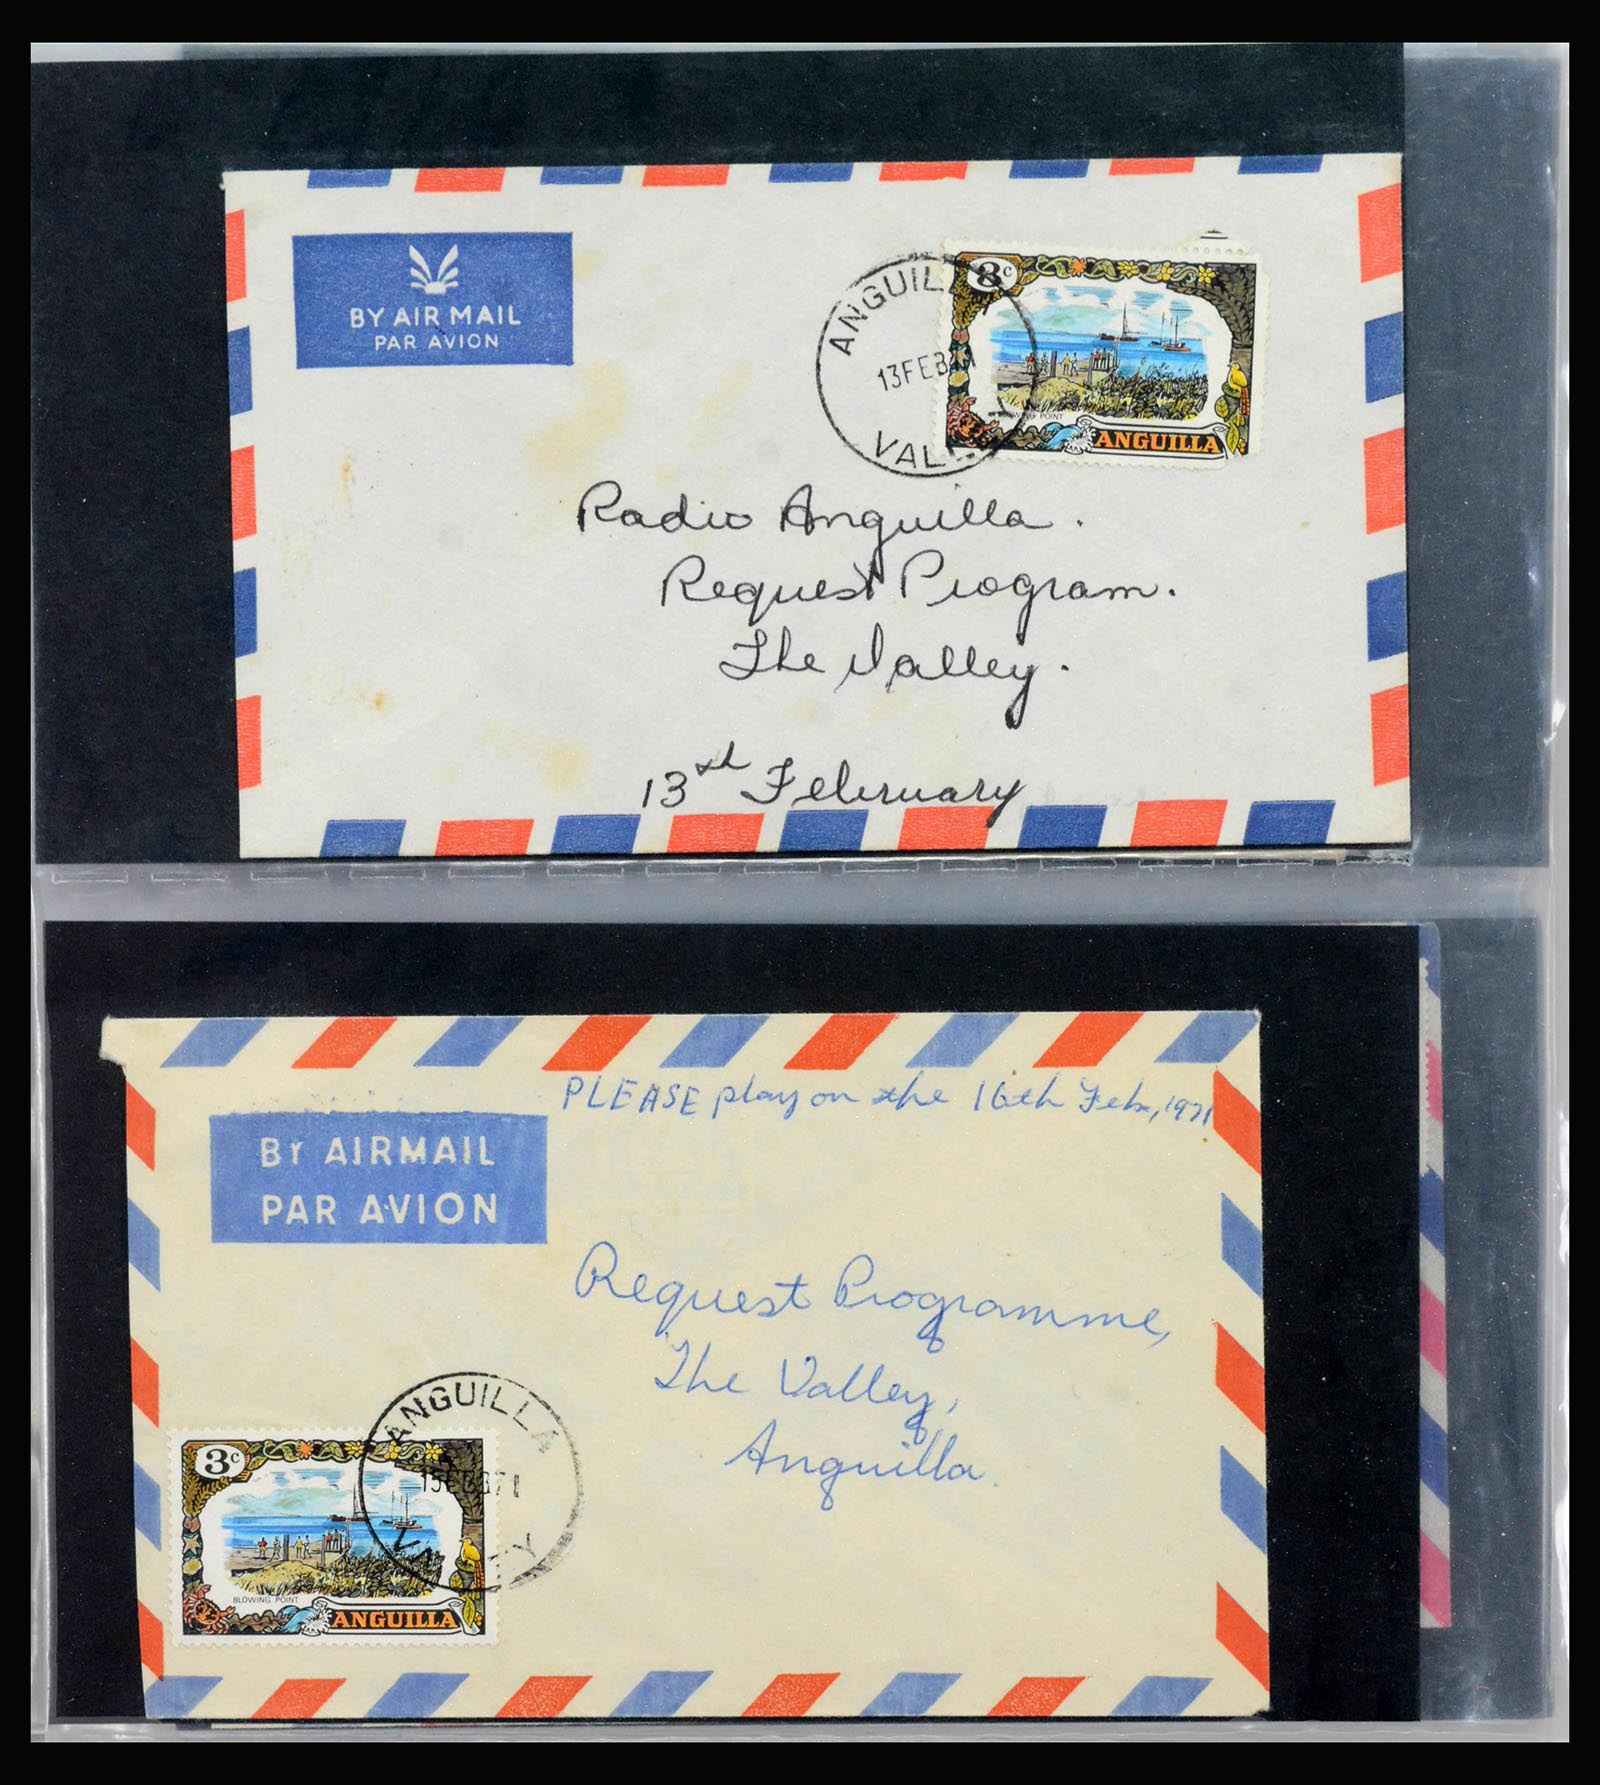 BY AIR MAIL
PAR AVION
ANGUILLA
13 FEB
VALLEY
3c
BLOWING POINT
ANGUILLA
Radio Anguilla.
Request Program.
The Valley.
13th February
PLEASE play on the 16th Feb, 1971
BY AIRMAIL
PAR AVION
Request Programme,
The Valley,
Anguilla.
ANGUILLA
15 FEB 71
VALLEY
3c
BLOWING POINT
ANGUILLA